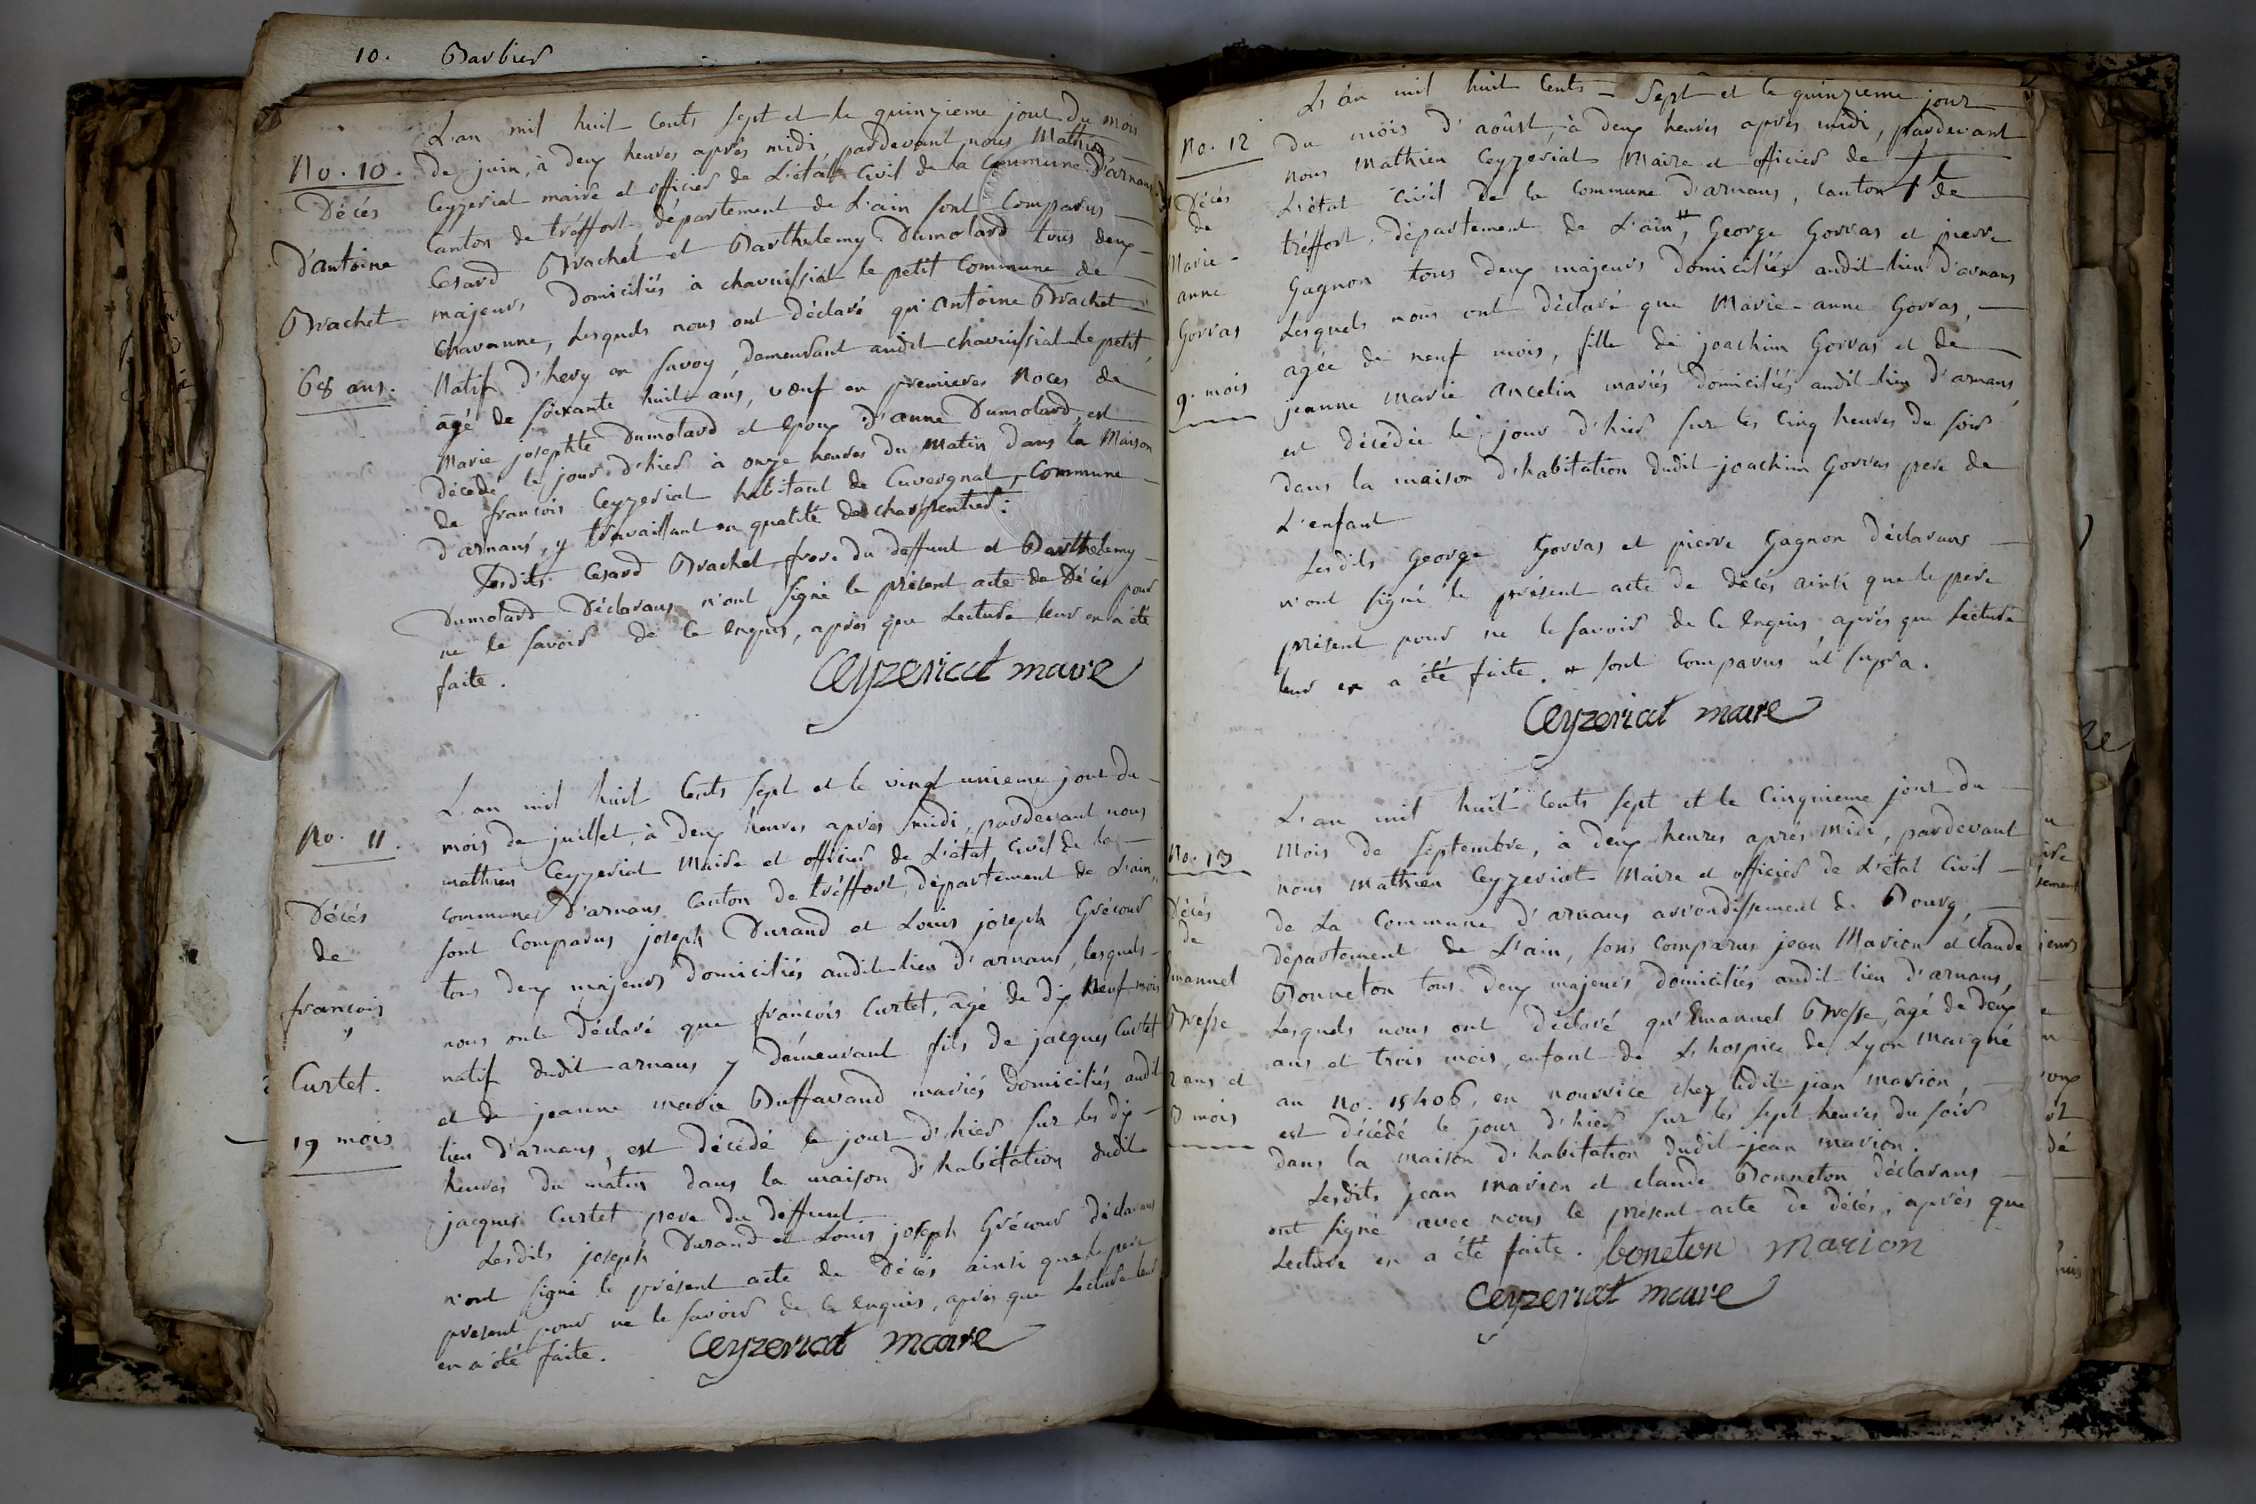 10. Barbier
No. 10.
Décés
D'antoine
Brachet
68 ans.
L'an mil huit Cents sept et le quinzieme jour Du mois
De juin, à deux heures après midi, pardevant nous Mathieu
Ceyzeriat maire et officier de L'état Civil de la Commune D'arnans
Canton de tréffort département de L'ain sont Comparus
Cesard Brachet et Barthelemy Dumolard tous deux
majeurs Domiciliés à chavuissiat le petit Commune de
Chavanne, Lesquels nous ont déclaré qu'Antoine Brachet
Natif D'hery en Savoy, demeurant audit chavuissiat le petit,
âgé de soixante huit ans, veuf en premieres Noces de
Marie josephte Dumolard et Epoux D'anne Dumolard, est
Décédé le jour d'hier à onze heures Du Matin Dans la Maison
de françois Ceyzeriat habitant de Cuvergnat, Commune
D'arnans, y travaillant en qualité de charpentier.
Lesdits Cesard Brachet frere du deffunt et Barthelemy
Dumolard Déclarans n'ont signé le présent acte de Décés pour
ne le savoir de ce Enquis, après que Lecture leur en a été
faite.
Ceyzeriat maire
No. 11.
Décés
de
françois
Curtet.
19 mois
L'an mil huit Cents sept et le vingt unieme jour du
mois de juillet, à Deux heures après midi, pardevant nous
mathieu Ceyzeriat Maire et officier de L'état Civil de la
commune D'arnans Canton de tréffort, département de L'ain,
sont Comparus joseph Durand et Louis joseph Grécour
tous deux majeurs domiciliés audit lieu D'arnans, lesquels
nous ont Déclaré que françois Curtet, âgé de dix Neuf mois
natif dudit arnans y demeurant fils de jacques Curtet
et de jeanne marie Buffavand mariés domiciliés audit
lieu D'arnans, est décédé le jour d'hier sur les dix
heures du matin dans la maison d'habitation dudit
jacques Curtet pere du deffunt
Lesdits joseph Durand et Louis joseph Grécour déclarans
n'ont signé le présent acte de Décés ainsi que le pere
présent pour ne le savoir de ce Enquis, après que Lecture leur
en a été faite.
Ceyzeriat maire
No. 12
Décés
de
Marie-
anne
Gorras
9. mois
L'an mil huit Cents - Sept et le quinzieme jour
Du mois d'aoûst, à deux heures après midi, pardevant
nous Mathieu Ceyzeriat Maire et officier de
L'état Civil de la Commune D'arnans, Canton de
tréffort, département de L'ain, # George Gorras et pierre
Gagnon tous deux majeurs domiciliés audit lieu D'arnans
Lesquels nous ont déclaré que Marie-anne Gorras,
agée de neuf mois, fille de joachim Gorras et de
jeanne Marie Ancelin mariés domiciliés audit lieu D'arnans,
est décédée le jour d'hier sur les Cinq heures du soir
dans la maison d'habitation dudit joachim Gorras pere de
L'enfant
Lesdits George Gorras et pierre Gagnon Déclarans
n'ont signé le présent acte de Décés ainsi que le pere
présent pour ne le savoir de ce Enquis, après que Lecture
leur en a été faite. # sont Comparus ut supra.
Ceyzeriat maire
No. 13
Décés
de
Emanuel
Bresse
2 ans et
3 mois
L'an mil huit Cents sept et le Cinquieme jour du
Mois de Septembre, à deux heures après Midi, pardevant
nous Mathieu Ceyzeriat Maire et officier de L'état Civil
de La Commune d'arnans arrondissement de Bourg,
département de L'ain, sons Comparus jean Marion et Claude
Bonneton tous deux majeurs domiciliés audit lieu D'arnans,
Lesquels nous ont déclaré qu'Emanuel Bresse, âgé de deux
ans et trois mois, enfant de L'hospice de Lyon marqué
au No. 15406, en nourrice chez ledit jean marion,
est décédé le jour d'hier sur les sept heures du soir
dans la maison d'habitation dudit jean marion.
Lesdits jean marion et claude Bonneton déclarans
ont signé avec nous le présent acte de décés, après que
Lecture en a été faite. boneton Marion
Ceyzeriat maire